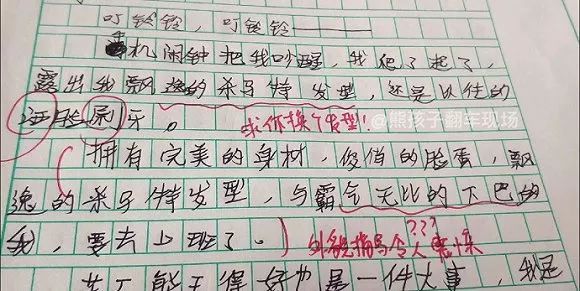 叮铃铃，叮铃铃——
机闹钟把我吵醒，我爬了起了，
露出我飘逸的杀马特发型，还是以往的
洗脸刷牙。
求你换个发型！
@熊孩子翻车现场
拥有完美的身材，俊俏的脸蛋，飘
逸的杀马特发型，与霸气无比的下巴的
我，要去上班了。
外貌描写令人
???
是一件大事，我是